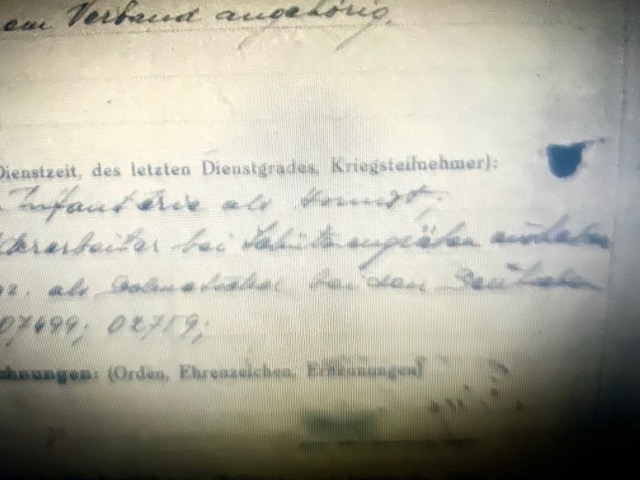 em Verband angehörig.
Dienstzeit, des letzten Dienstgrades, Kriegsteilnehmer):
Infanterie als
arbeiter bei
als Dolmetscher bei den Deutschen
07499; 02719;
chnungen: (Orden, Ehrenzeichen, Ernennungen)